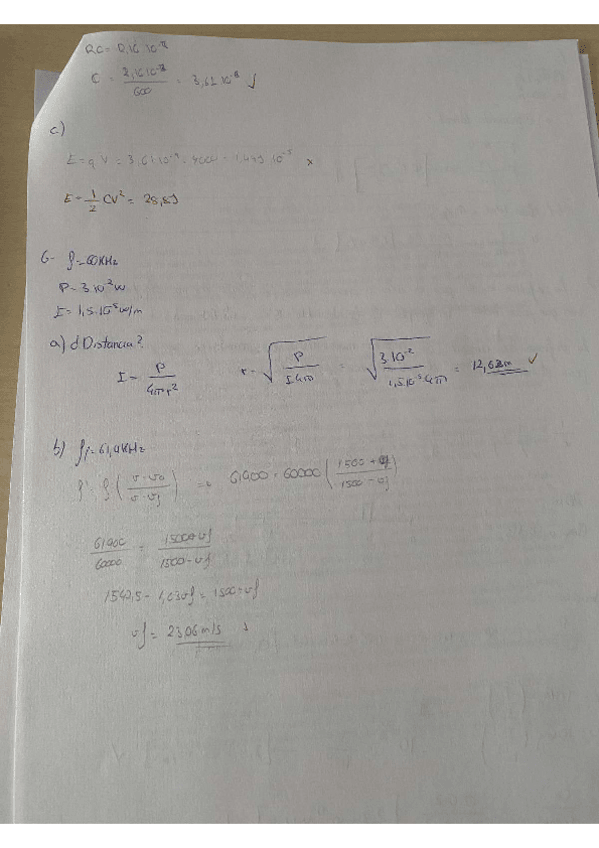 RC = 2,16 10⁻²
C = 2,16 10⁻² / 600 = 3,61 10⁻⁸
c)
E = q V = 3,61 10⁻⁸ · 4000 = 1,443 · 10⁻⁵ x
E = 1/2 CV² = 28,8J
6- f = 60KHz
P = 3 10⁻² W
I = 1,5 · 10⁻⁵ W/m
a) d Distancia?
I = P / 4πr² r = √(P / I 4π) = √(3 10⁻² / 1,5 10⁻⁵ 4π) = 12,62m ✓
b) f₁ = 61,9KHz
f' f (v - vo / v - vf) => 61900 = 60000 (1500 + vf / 1500 - vf)
61900 / 60000 = 1500 + vf / 1500 - vf
1547,5 - 1,03vf = 1500 + vf
vf = 23,06 m/s